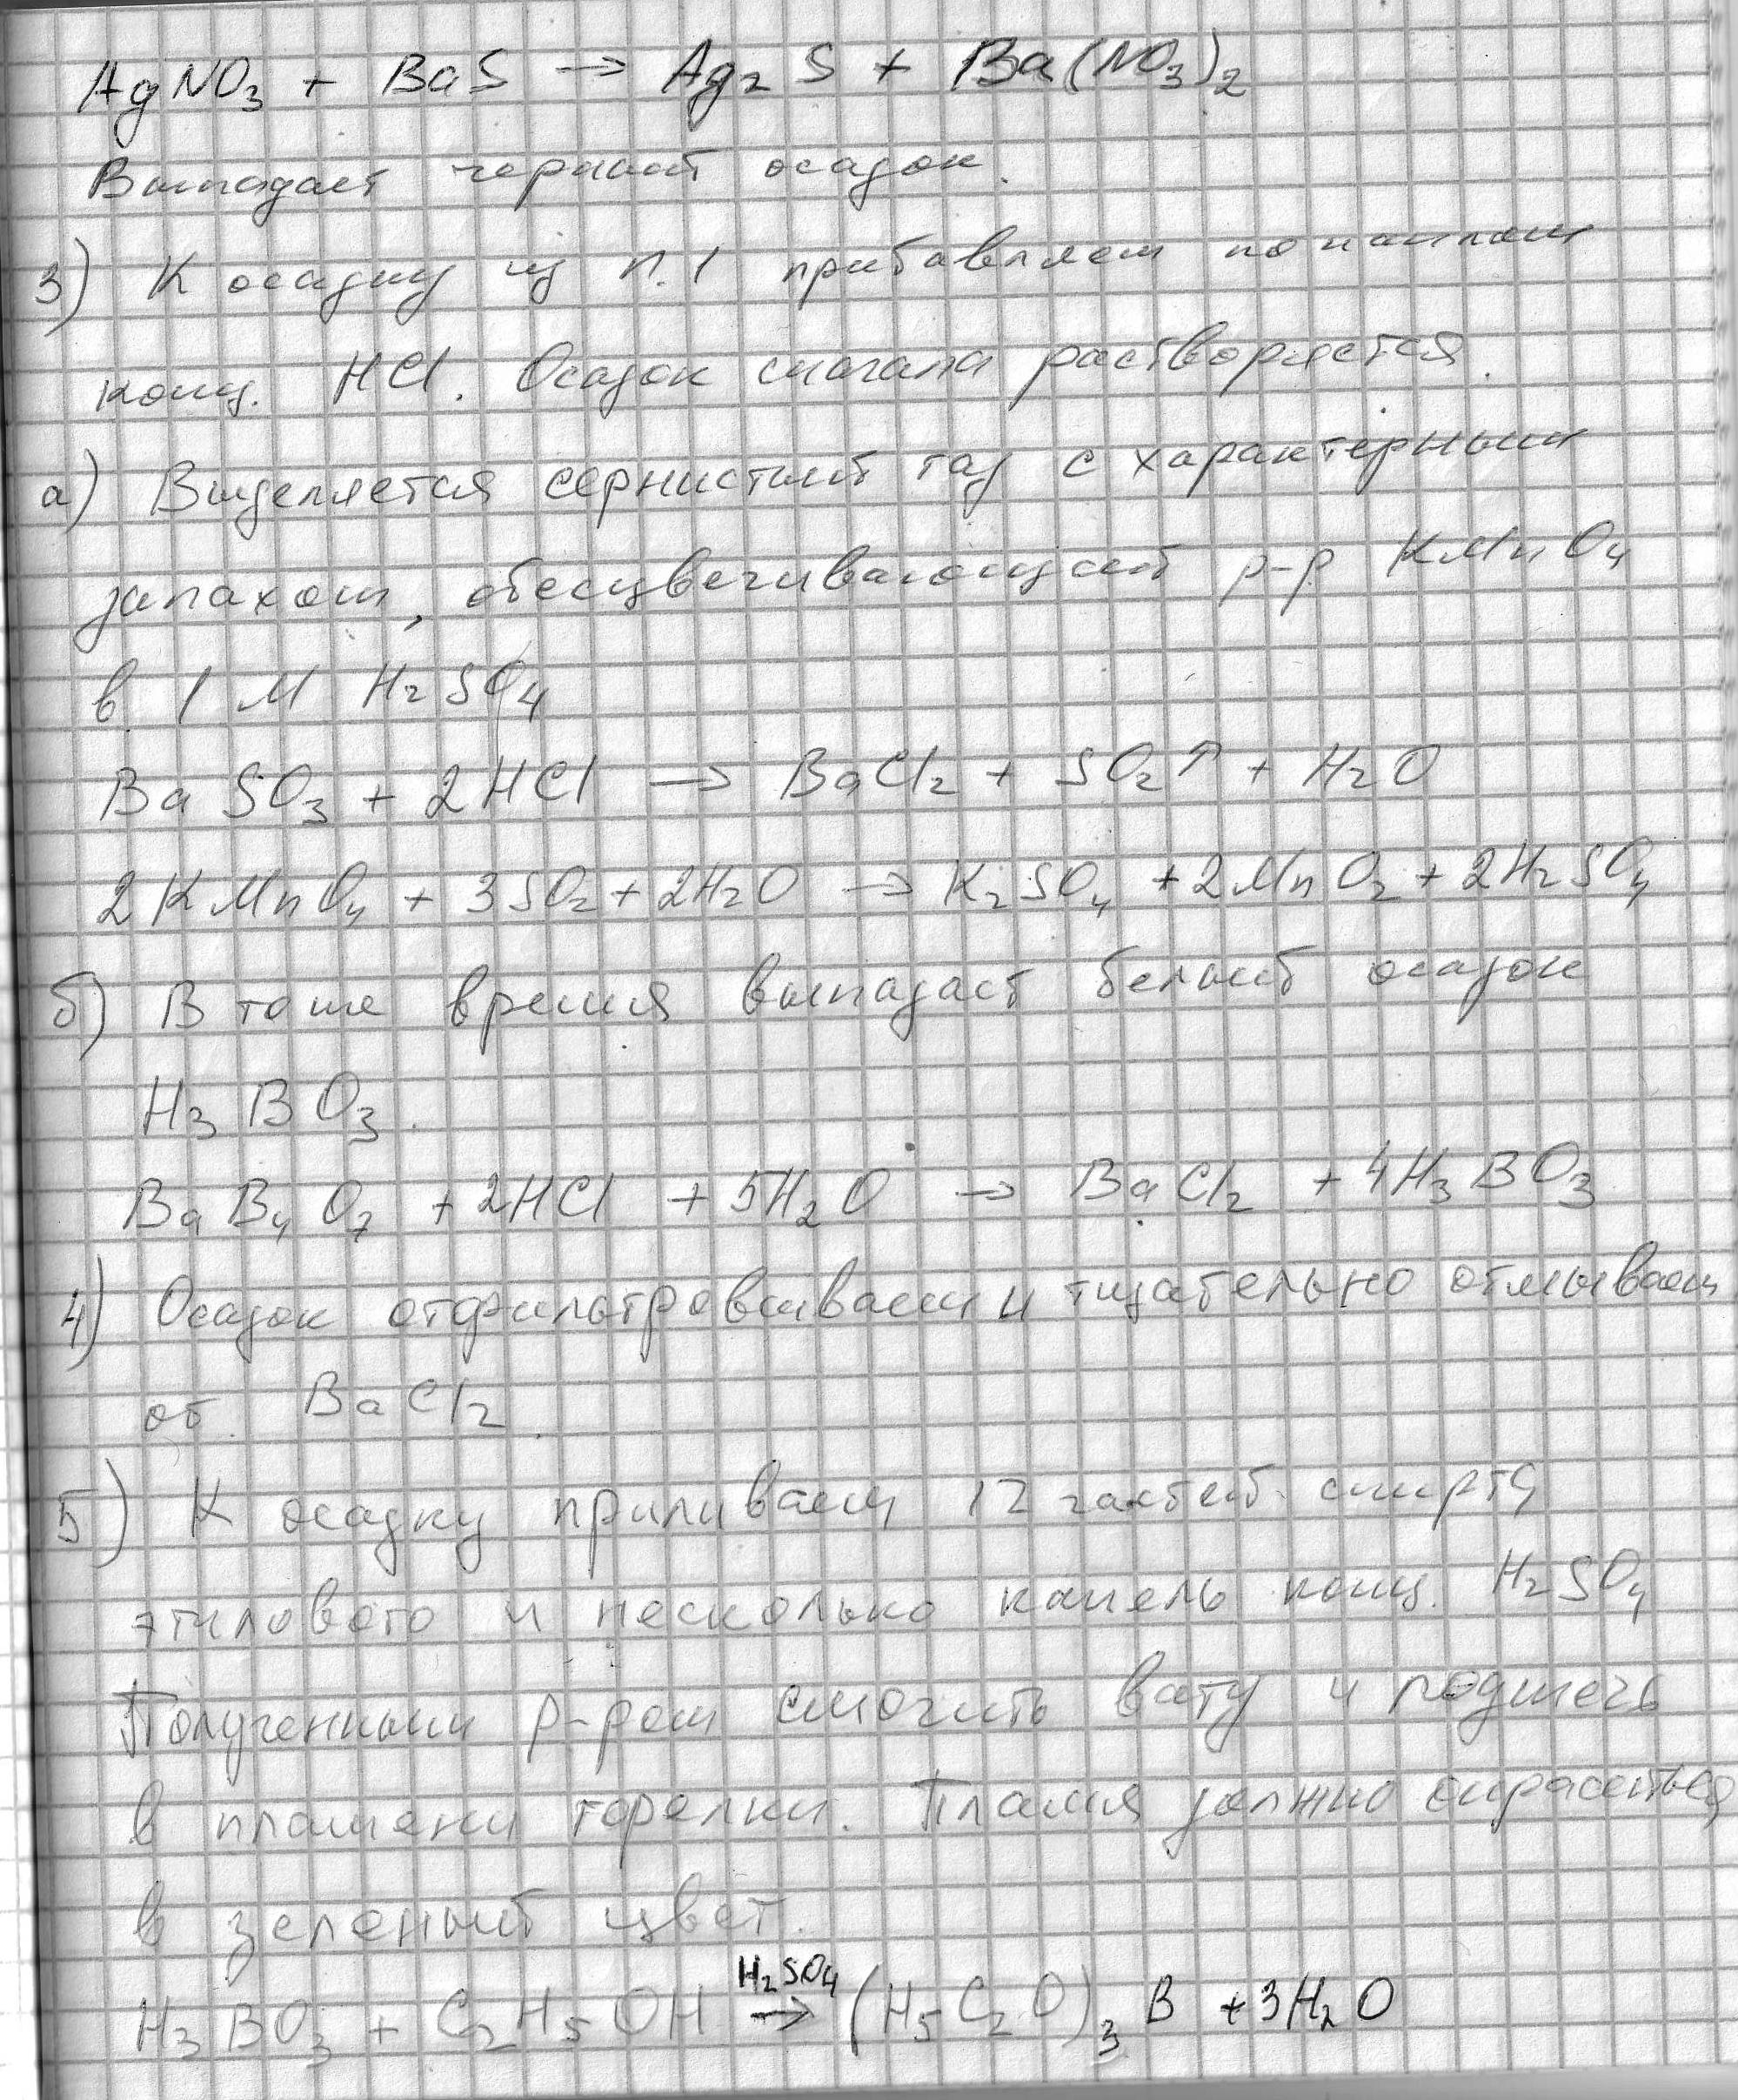 AgNO₃ + BaS → Ag₂S + Ba(NO₃)₂
Выпадает черный осадок.
3) К осадку из п.1 прибавляем по каплям
конц. HCl. Осадок сначала растворяется.
а) Выделяется сернистый газ с характерным
запахом, обесцвечивающий р-р KMnO₄
в 1 М H₂SO₄
BaSO₃ + 2HCl → BaCl₂ + SO₂↑ + H₂O
2KMnO₄ + 3SO₂ + 2H₂O → K₂SO₄ + 2MnO₂ + 2H₂SO₄
б) В тоже время выпадает белый осадок
H₃BO₃.
BaB₄O₇ + 2HCl + 5H₂O → BaCl₂ + 4H₃BO₃
4) Осадок отфильтровываем и тщательно отмываем
от BaCl₂.
5) К осадку приливаем 12 частей спирта
этилового и несколько капель конц. H₂SO₄
Полученным р-ром смочить вату и поджечь
в пламени горелки. Пламя должно окраситься
в зеленый цвет.
H₃BO₃ + C₂H₅OH →(H₂SO₄) (H₅C₂O)₃B + 3H₂O